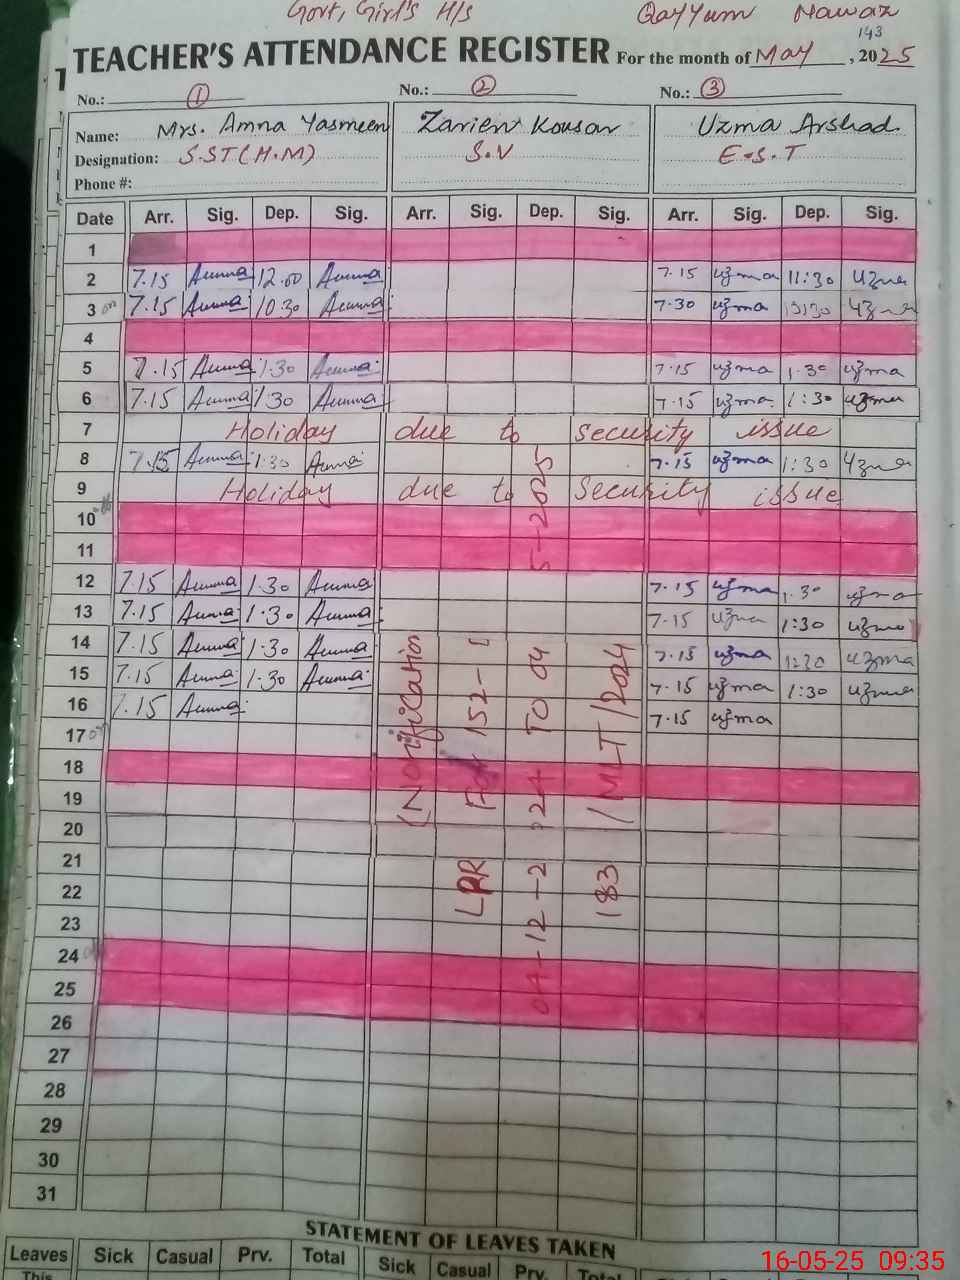 Govt, Girl's H/S Qayyum Nawaz
143
TEACHER'S ATTENDANCE REGISTER For the month of May, 2025
No.: 1 No.: 2 No.: 3
Name: Mrs. Amna Yasmeen Zarien Kousar Uzma Arshad
Designation: S.ST(H.M) S.V E.S.T
Phone #:
Date Arr. Sig. Dep. Sig. Arr. Sig. Dep. Sig. Arr. Sig. Dep. Sig.
1
2 7.15 Amna 12.00 Amna 7.15 uzma 11:30 uzma
3 7.15 Amna 10.30 Amna 7.30 uzma uzma
4
5 7.15 Amna 1.30 Amna 7.15 uzma 1.30 uzma
6 7.15 Amna 1.30 Amna 7.15 uzma 1:30 uzma
7 Holiday due to security issue
8 7.15 Amna 1.30 Amna 7.15 uzma 1:30 uzma
9 Holiday due to security issue
10
11
12 7.15 Amna 1.30 Amna 7.15 uzma 1.30 uzma
13 7.15 Amna 1.30 Amna 7.15 uzma 1:30 uzma
14 7.15 Amna 1.30 Amna 7.15 uzma 1:30 uzma
15 7.15 Amna 1.30 Amna 7.15 uzma 1:30 uzma
16 7.15 Amna 7.15 uzma
17
18
19
20
21
22
23
24
25
26
27
28
29
30
31
(Notification
LPR 152-
04-12-2024 To 04 5-2025
183 /MLT/2024
STATEMENT OF LEAVES TAKEN
Leaves Sick Casual Prv. Total Sick Casual Prv. Total
This
16-05-25 09:35